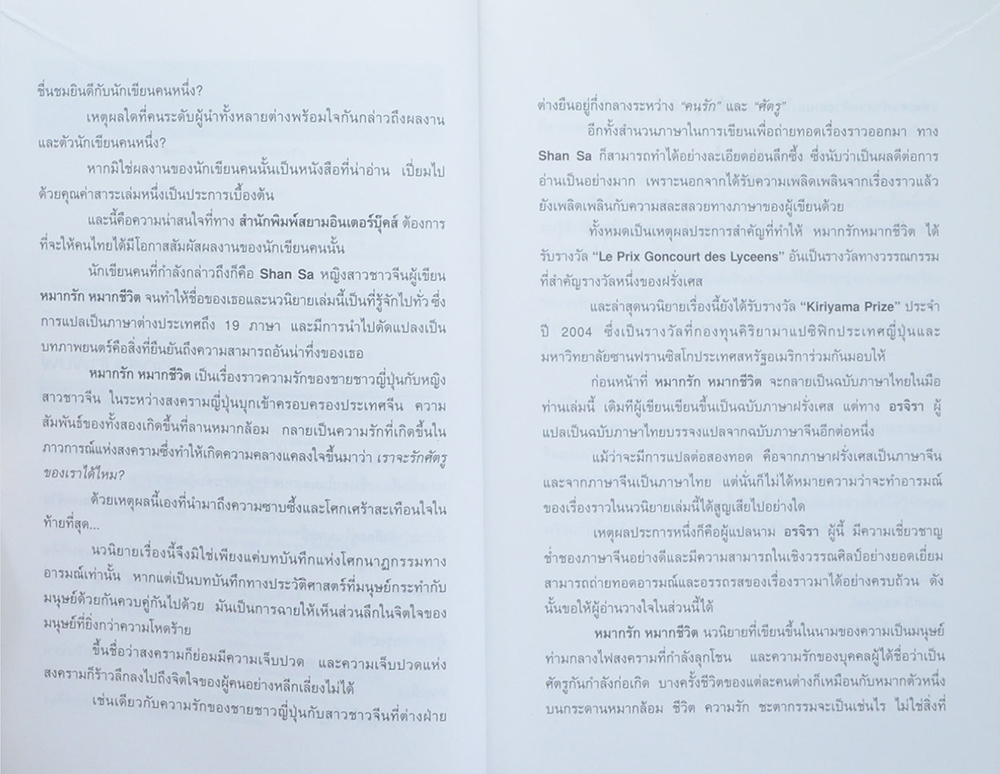 ชื่นชมยินดีกับนักเขียนคนหนึ่ง?
เหตุผลใดที่คนระดับผู้นำทั้งหลายต่างพร้อมใจกันกล่าวถึงผลงาน
และตัวนักเขียนคนหนึ่ง?
หากมิใช่ผลงานของนักเขียนคนนั้นเป็นหนังสือที่น่าอ่าน เปี่ยมไป
ด้วยคุณค่าสาระเล่มหนึ่งเป็นประการเบื้องต้น
และนี้คือความน่าสนใจที่ทาง สำนักพิมพ์สยามอินเตอร์บุ๊คส์ ต้องการ
ที่จะให้คนไทยได้มีโอกาสสัมผัสผลงานของนักเขียนคนนั้น
นักเขียนคนที่กำลังกล่าวถึงก็คือ Shan Sa หญิงสาวชาวจีนผู้เขียน
หมากรัก หมากชีวิต จนทำให้ชื่อของเธอและนวนิยายเล่มนี้เป็นที่รู้จักไปทั่ว ซึ่ง
การแปลเป็นภาษาต่างประเทศถึง 19 ภาษา และมีการนำไปดัดแปลงเป็น
บทภาพยนตร์คือสิ่งที่ยืนยันถึงความสามารถอันน่าทึ่งของเธอ
หมากรัก หมากชีวิต เป็นเรื่องราวความรักของชายชาวญี่ปุ่นกับหญิง
สาวชาวจีน ในระหว่างสงครามญี่ปุ่นบุกเข้าครอบครองประเทศจีน ความ
สัมพันธ์ของทั้งสองเกิดขึ้นที่ลานหมากล้อม กลายเป็นความรักที่เกิดขึ้นใน
ภาวการณ์แห่งสงครามซึ่งทำให้เกิดความคลางแคลงใจขึ้นมาว่า เราจะรักศัตรู
ของเราได้ไหม?
ด้วยเหตุผลนี้เองที่นำมาถึงความซาบซึ้งและโศกเศร้าสะเทือนใจใน
ท้ายที่สุด...
นวนิยายเรื่องนี้จึงมิใช่เพียงแค่บทบันทึกแห่งโศกนาฏกรรมทาง
อารมณ์เท่านั้น หากแต่เป็นบทบันทึกทางประวัติศาสตร์ที่มนุษย์กระทำกับ
มนุษย์ด้วยกันควบคู่กันไปด้วย มันเป็นการฉายให้เห็นส่วนลึกในจิตใจของ
มนุษย์ที่ยิ่งกว่าความโหดร้าย
ขึ้นชื่อว่าสงครามก็ย่อมมีความเจ็บปวด และความเจ็บปวดแห่ง
สงครามก็ร้าวลึกลงไปถึงจิตใจของผู้คนอย่างหลีกเลี่ยงไม่ได้
เช่นเดียวกับความรักของชายชาวญี่ปุ่นกับสาวชาวจีนที่ต่างฝ่าย
ต่างยืนอยู่กึ่งกลางระหว่าง “คนรัก” และ “ศัตรู”
อีกทั้งสำนวนภาษาในการเขียนเพื่อถ่ายทอดเรื่องราวออกมา ทาง
Shan Sa ก็สามารถทำได้อย่างละเอียดอ่อนลึกซึ้ง ซึ่งนับว่าเป็นผลดีต่อการ
อ่านเป็นอย่างมาก เพราะนอกจากได้รับความเพลิดเพลินจากเรื่องราวแล้ว
ยังเพลิดเพลินกับความสละสลวยทางภาษาของผู้เขียนด้วย
ทั้งหมดเป็นเหตุผลประการสำคัญที่ทำให้ หมากรักหมากชีวิต ได้
รับรางวัล “Le Prix Goncourt des Lyceens” อันเป็นรางวัลทางวรรณกรรม
ที่สำคัญรางวัลหนึ่งของฝรั่งเศส
และล่าสุดนวนิยายเรื่องนี้ยังได้รับรางวัล “Kiriyama Prize” ประจำ
ปี 2004 ซึ่งเป็นรางวัลที่กองทุนคิริยามาแปซิฟิกประเทศญี่ปุ่นและ
มหาวิทยาลัยซานฟรานซิสโกประเทศสหรัฐอเมริการ่วมกันมอบให้
ก่อนหน้าที่ หมากรัก หมากชีวิต จะกลายเป็นฉบับภาษาไทยในมือ
ท่านเล่มนี้ เดิมทีผู้เขียนเขียนขึ้นเป็นฉบับภาษาฝรั่งเศส แต่ทาง อรจิรา ผู้
แปลเป็นฉบับภาษาไทยบรรจงแปลจากฉบับภาษาจีนอีกต่อหนึ่ง
แม้ว่าจะมีการแปลต่อสองทอด คือจากภาษาฝรั่งเศสเป็นภาษาจีน
และจากภาษาจีนเป็นภาษาไทย แต่นั่นก็ไม่ได้หมายความว่าจะทำอารมณ์
ของเรื่องราวในนวนิยายเล่มนี้ได้สูญเสียไปอย่างใด
เหตุผลประการหนึ่งก็คือผู้แปลนาม อรจิรา ผู้นี้ มีความเชี่ยวชาญ
ช่ำชองภาษาจีนอย่างดีและมีความสามารถในเชิงวรรณศิลป์อย่างยอดเยี่ยม
สามารถถ่ายทอดอารมณ์และอรรถรสของเรื่องราวมาได้อย่างครบถ้วน ดัง
นั้นขอให้ผู้อ่านวางใจในส่วนนี้ได้
หมากรัก หมากชีวิต นวนิยายที่เขียนขึ้นในนามของความเป็นมนุษย์
ท่ามกลางไฟสงครามที่กำลังลุกโชน และความรักของบุคคลผู้ได้ชื่อว่าเป็น
ศัตรูกันกำลังก่อเกิด บางครั้งชีวิตของแต่ละคนต่างก็เหมือนกับหมากตัวหนึ่ง
บนกระดานหมากล้อม ชีวิต ความรัก ชะตากรรมจะเป็นเช่นไร ไม่ใช่สิ่งที่